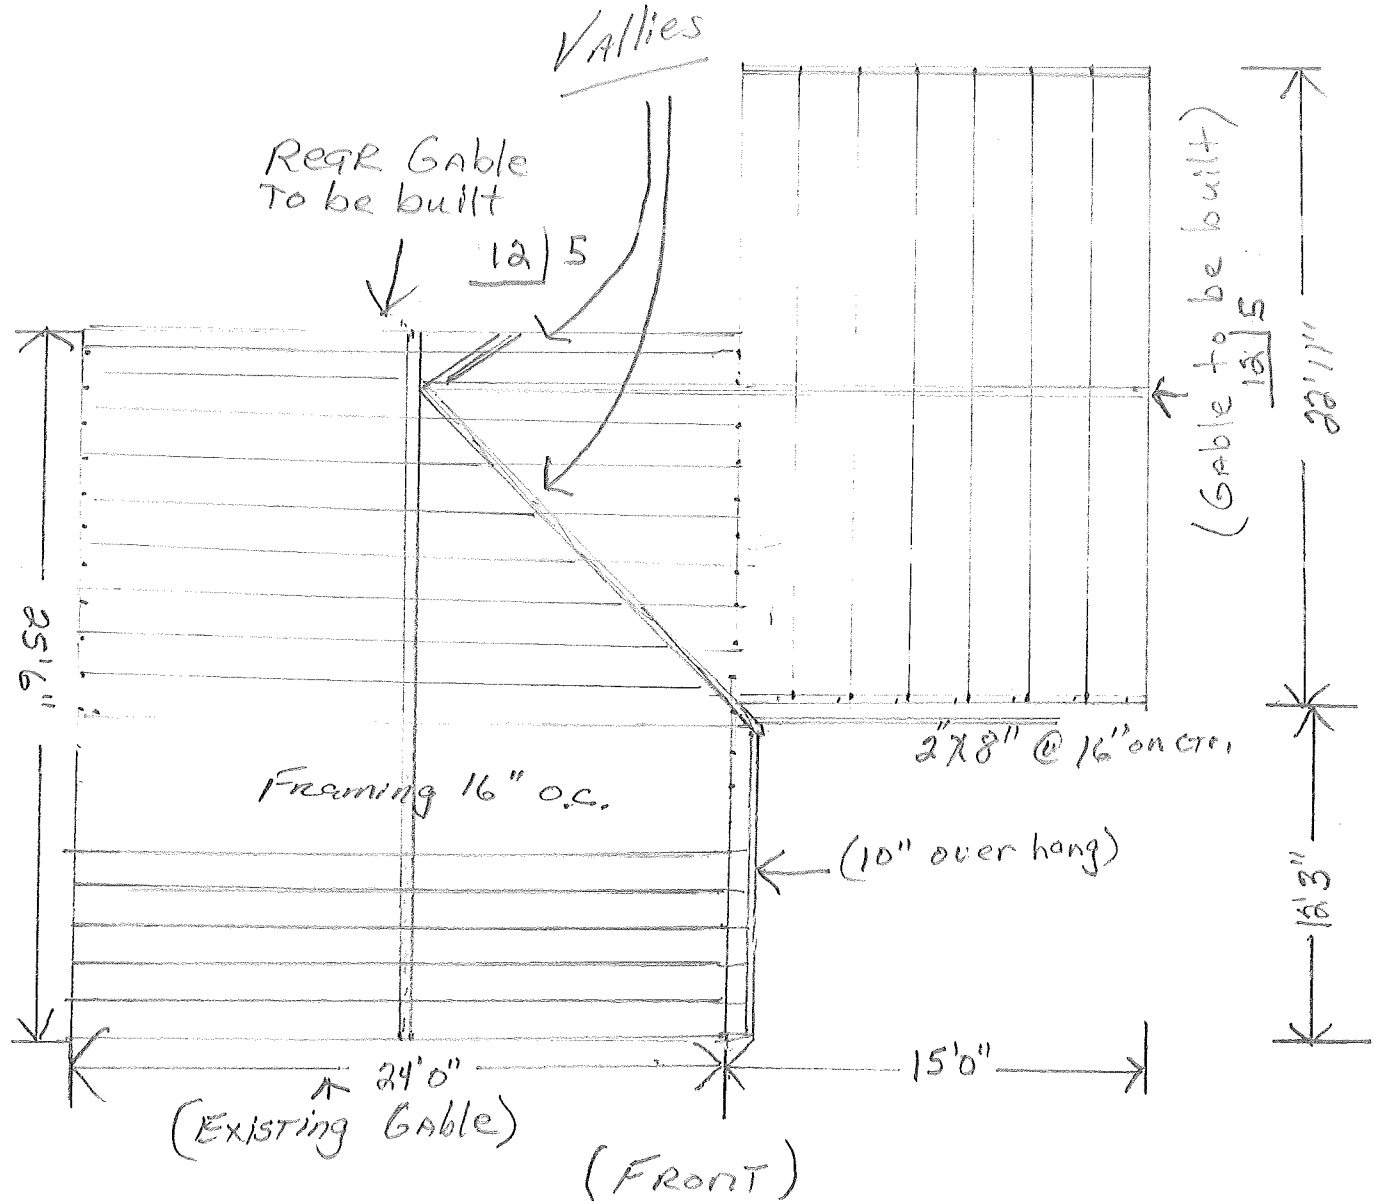 VAllies
ReaR GAble
To be built
12 5
(GAble to be built)
12 5
22'11"
25'6"
2"X8" @ 16" on ctr.
Framing 16" o.c.
(10" over hang)
12'3"
24'0"
15'0"
(ExisTing GAble)
(FRonT)